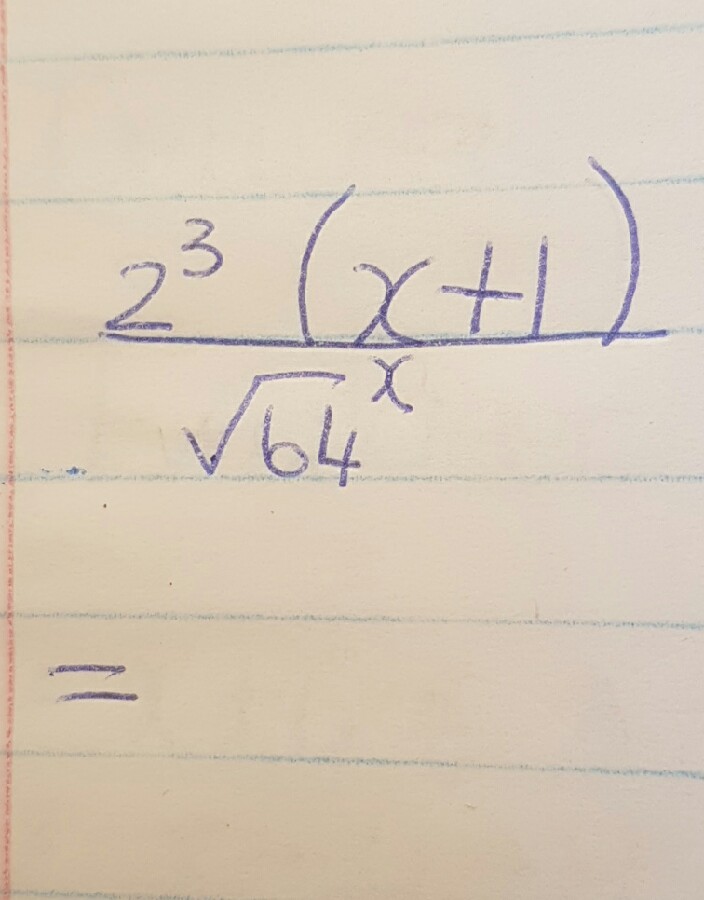 2³ (x+1)
√64ˣ
=